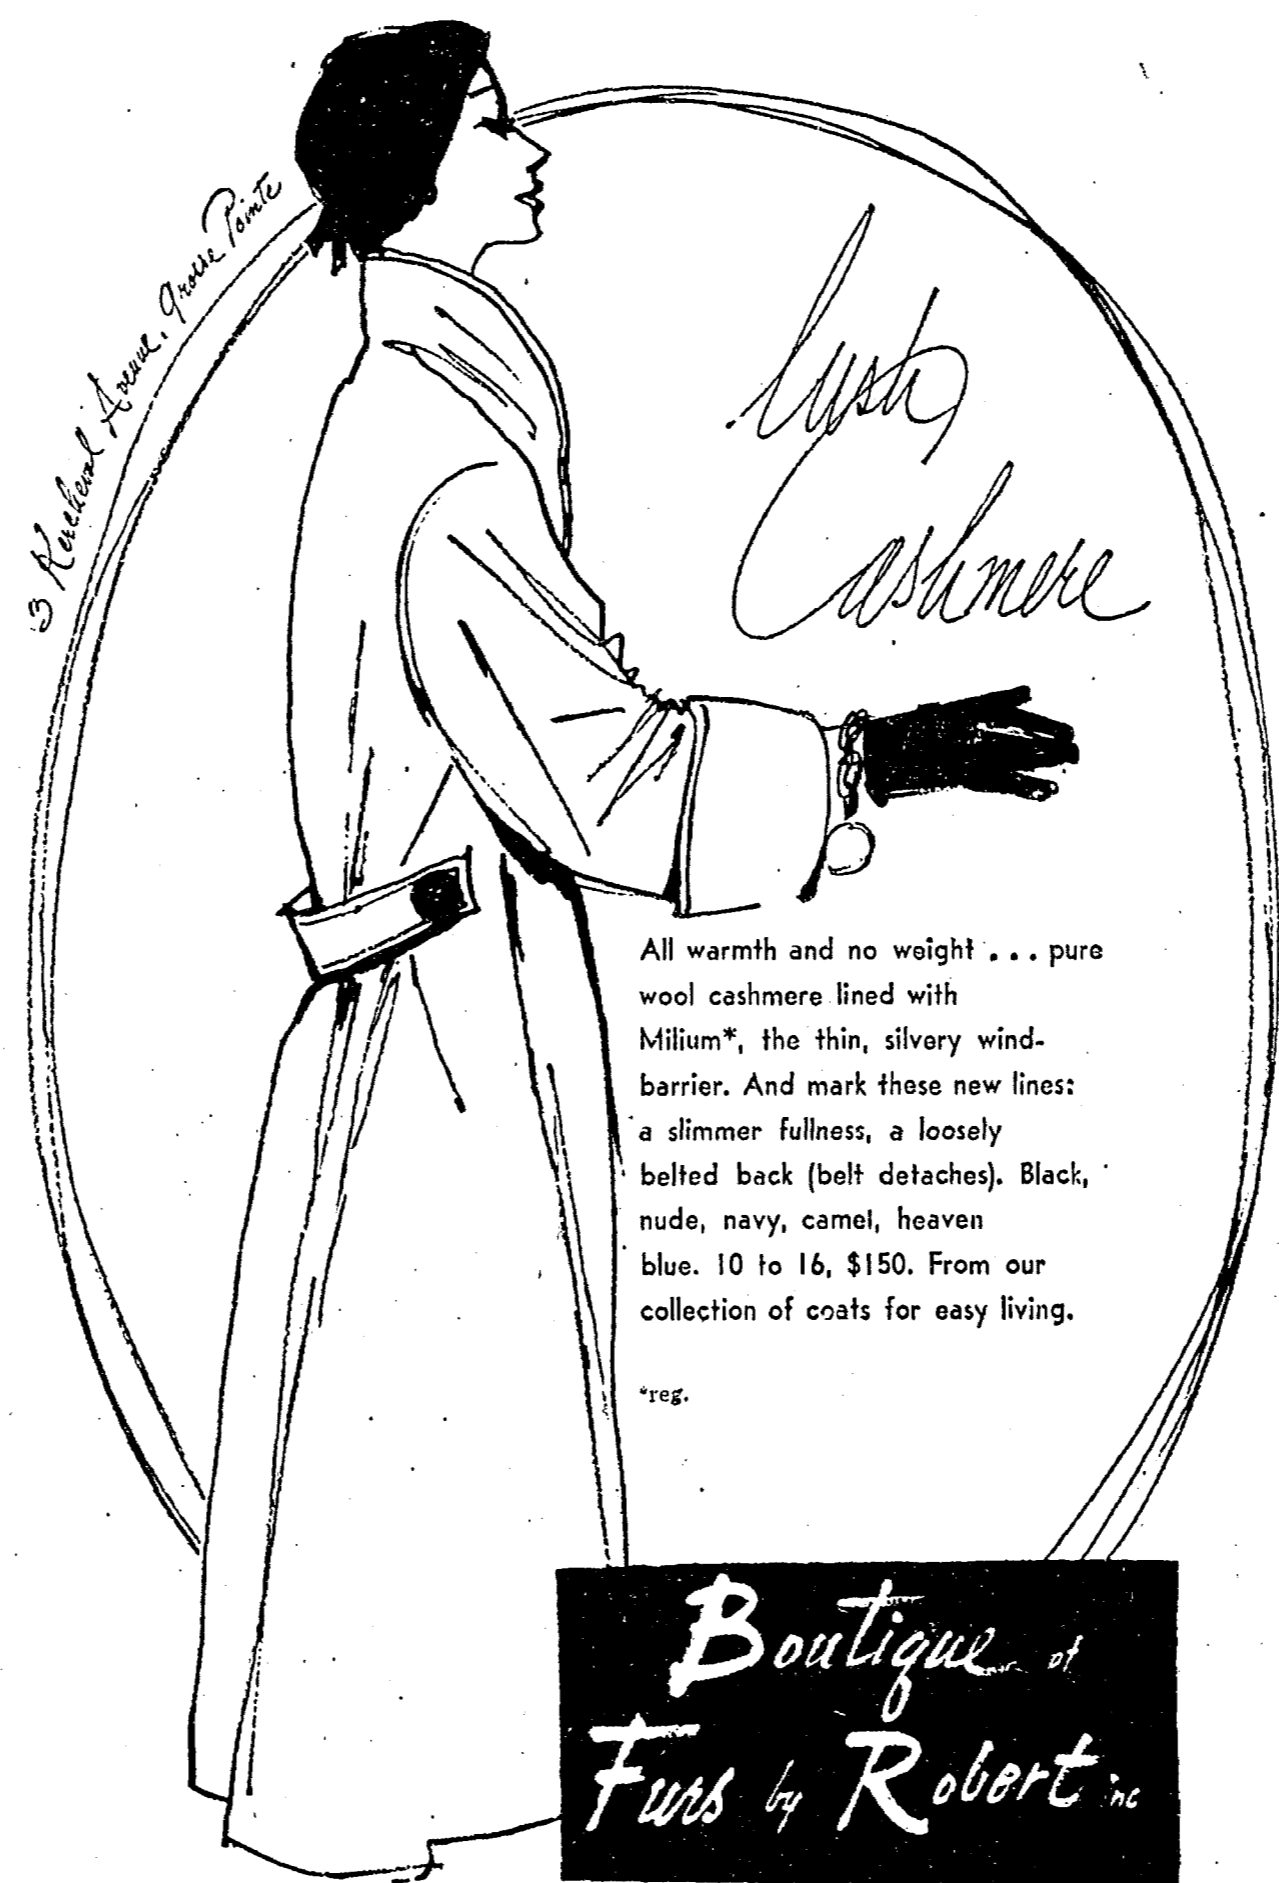 3 Kercheval Avenue, Grosse Pointe
lush
Cashmere
All warmth and no weight . . . pure
wool cashmere lined with
Milium*, the thin, silvery wind-
barrier. And mark these new lines:
a slimmer fullness, a loosely
belted back (belt detaches). Black,
nude, navy, camel, heaven
blue. 10 to 16, $150. From our
collection of coats for easy living.
*reg.
Boutique at
Furs by Robert inc